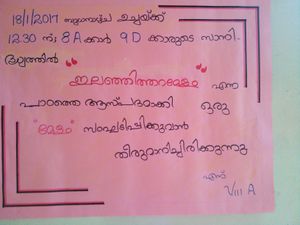 18/1/2017 ബുധനാഴ്ച ഉച്ചയ്ക്ക്
12.30 ന് 8 A ക്കാർ 9 D ക്കാരുടെ സാന്നി
ദ്ധ്യത്തിൽ
"ഇലഞ്ഞിത്തറമേളം" എന്ന
പാഠത്തെ ആസ്പദമാക്കി ഒരു
"മേളം" സംഘടിപ്പിക്കുവാൻ
തീരുമാനിച്ചിരിക്കുന്നു
എന്ന്
VIII A